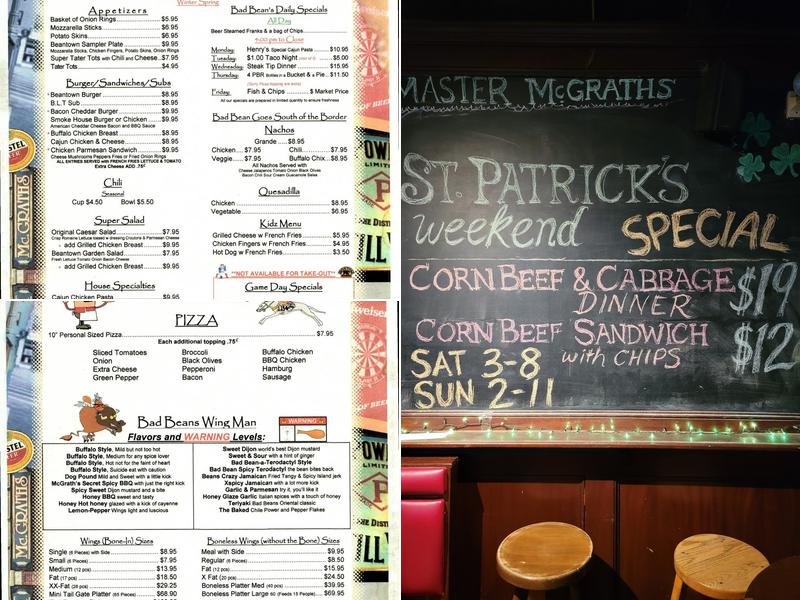 Winter Spring
Appetizers
Basket of Onion Rings $5.95
Mozzarella Sticks $6.95
Potato Skins $6.95
Beantown Sampler Plate $9.95
Mozzarella Sticks, Chicken Fingers, Potato Skins, Onion Rings
Super Tater Tots with Chili and Cheese $7.95
Tater Tots $4.95
Burger/Sandwiches/Subs
Beantown Burger $8.95
B.L.T Sub $8.95
Bacon Cheddar Burger $9.95
Smoke House Burger or Chicken $9.95
American Cheddar Cheese Bacon and BBQ Sauce
Buffalo Chicken Breast $8.95
Cajun Chicken & Cheese $8.95
Chicken Parmesan Sandwich $9.95
Cheese Mushrooms Peppers Fries or Fried Onion Rings
ALL ENTREES SERVED with FRENCH FRIES LETTUCE & TOMATO
Extra Cheese ADD .75¢
Chili
Seasonal
Cup $4.50 Bowl $5.50
Super Salad
Original Caesar Salad $7.95
Crisp Romaine Lettuce tossed w dressing Croutons & Parmesan Cheese
- add Grilled Chicken Breast $9.95
Beantown Garden Salad $7.95
Fresh Lettuce Tomato Onion Bacon Cheese
- add Grilled Chicken Breast $9.95
House Specialties
Cajun Chicken Pasta
Bad Bean's Daily Specials
All Day
Beer Steamed Franks & a bag of Chips
4:00 pm to Close
Monday: Henry's Special Cajun Pasta $10.95
Tuesday: $1.00 Taco Night $5.00
Wednesday: Steak Tip Dinner $15.95
Thursday: 4 PBR Bottles in a Bucket & a Pie $11.50
Friday: Fish & Chips $ Market Price
All our specials are prepared in limited quantity to ensure freshness
Bad Bean Goes South of the Border
Nachos
Grande $8.95
Chicken $7.95 Chili $7.95
Veggie $7.95 Buffalo Chix $8.95
All Nachos Served with
Cheese Jalapenos Tomato Onion Black Olives
Bacon Chili Sour Cream Guacamole Salsa
Quesadilla
Chicken $8.95
Vegetable $6.95
Kidz Menu
Grilled Cheese w French Fries $5.95
Chicken Fingers w French Fries $4.95
Hot Dog w French Fries $3.50
**NOT AVAILABLE FOR TAKE-OUT**
Game Day Specials
McGRATHS
PIZZA
10" Personal Sized Pizza $7.95
Each additional topping .75¢
Sliced Tomatoes Broccoli Buffalo Chicken
Onion Black Olives BBQ Chicken
Extra Cheese Pepperoni Hamburg
Green Pepper Bacon Sausage
Bad Beans Wing Man
WARNING
Flavors and WARNING Levels:
Buffalo Style, Mild but not too hot
Buffalo Style, Medium for any spice lover
Buffalo Style, Hot not for the faint of heart
Buffalo Style, Suicide eat with caution
Dog Pound Mild and Sweet with a little kick
McGrath's Secret Spicy BBQ with just the right kick
Spicy Sweet Dijon mustard and a bite
Honey BBQ sweet and tasty
Honey Hot honey glazed with a kick of cayenne
Lemon-Pepper Wings light and luscious
Sweet Dijon world's best Dijon mustard
Sweet & Sour with a hint of ginger
Bad Bean-a-Terodactyl Style
Bad Bean Spicy Terodactyl the bean bites back
Beans Crazy Jamaican Fried Tangy & Spicy Island jerk
Xspicy Jamaican with a lot more kick
Garlic & Parmesan try it, you'll like it
Honey Glaze Garlic Italian spices with a touch of honey
Teriyaki Bad Beans Oriental classic
The Baked Chile Power and Pepper Flakes
Wings (Bone-In) Sizes
Single (6 Pieces) with Side $8.95
Small (6 Pieces) $7.95
Medium (12 pcs) $13.95
Fat (17 pcs) $18.50
XX-Fat (28 pcs) $29.25
Mini Tail Gate Platter (65 Pieces) $68.90
Boneless Wings (without the Bone) Sizes
Meal with Side $9.95
Regular (6 Pieces) $8.50
Fat (12 pcs) $15.95
X Fat (20 pcs) $24.50
Boneless Platter Med (40 pcs) $39.95
Boneless Platter Large 60 (Feeds 15 People) $69.95
McGRATHS
MASTER McGRATHS
ST. PATRICK'S
weekend SPECIAL
CORN BEEF & CABBAGE $19
DINNER
CORN BEEF SANDWICH $12
with CHIPS
SAT 3-8
SUN 2-11